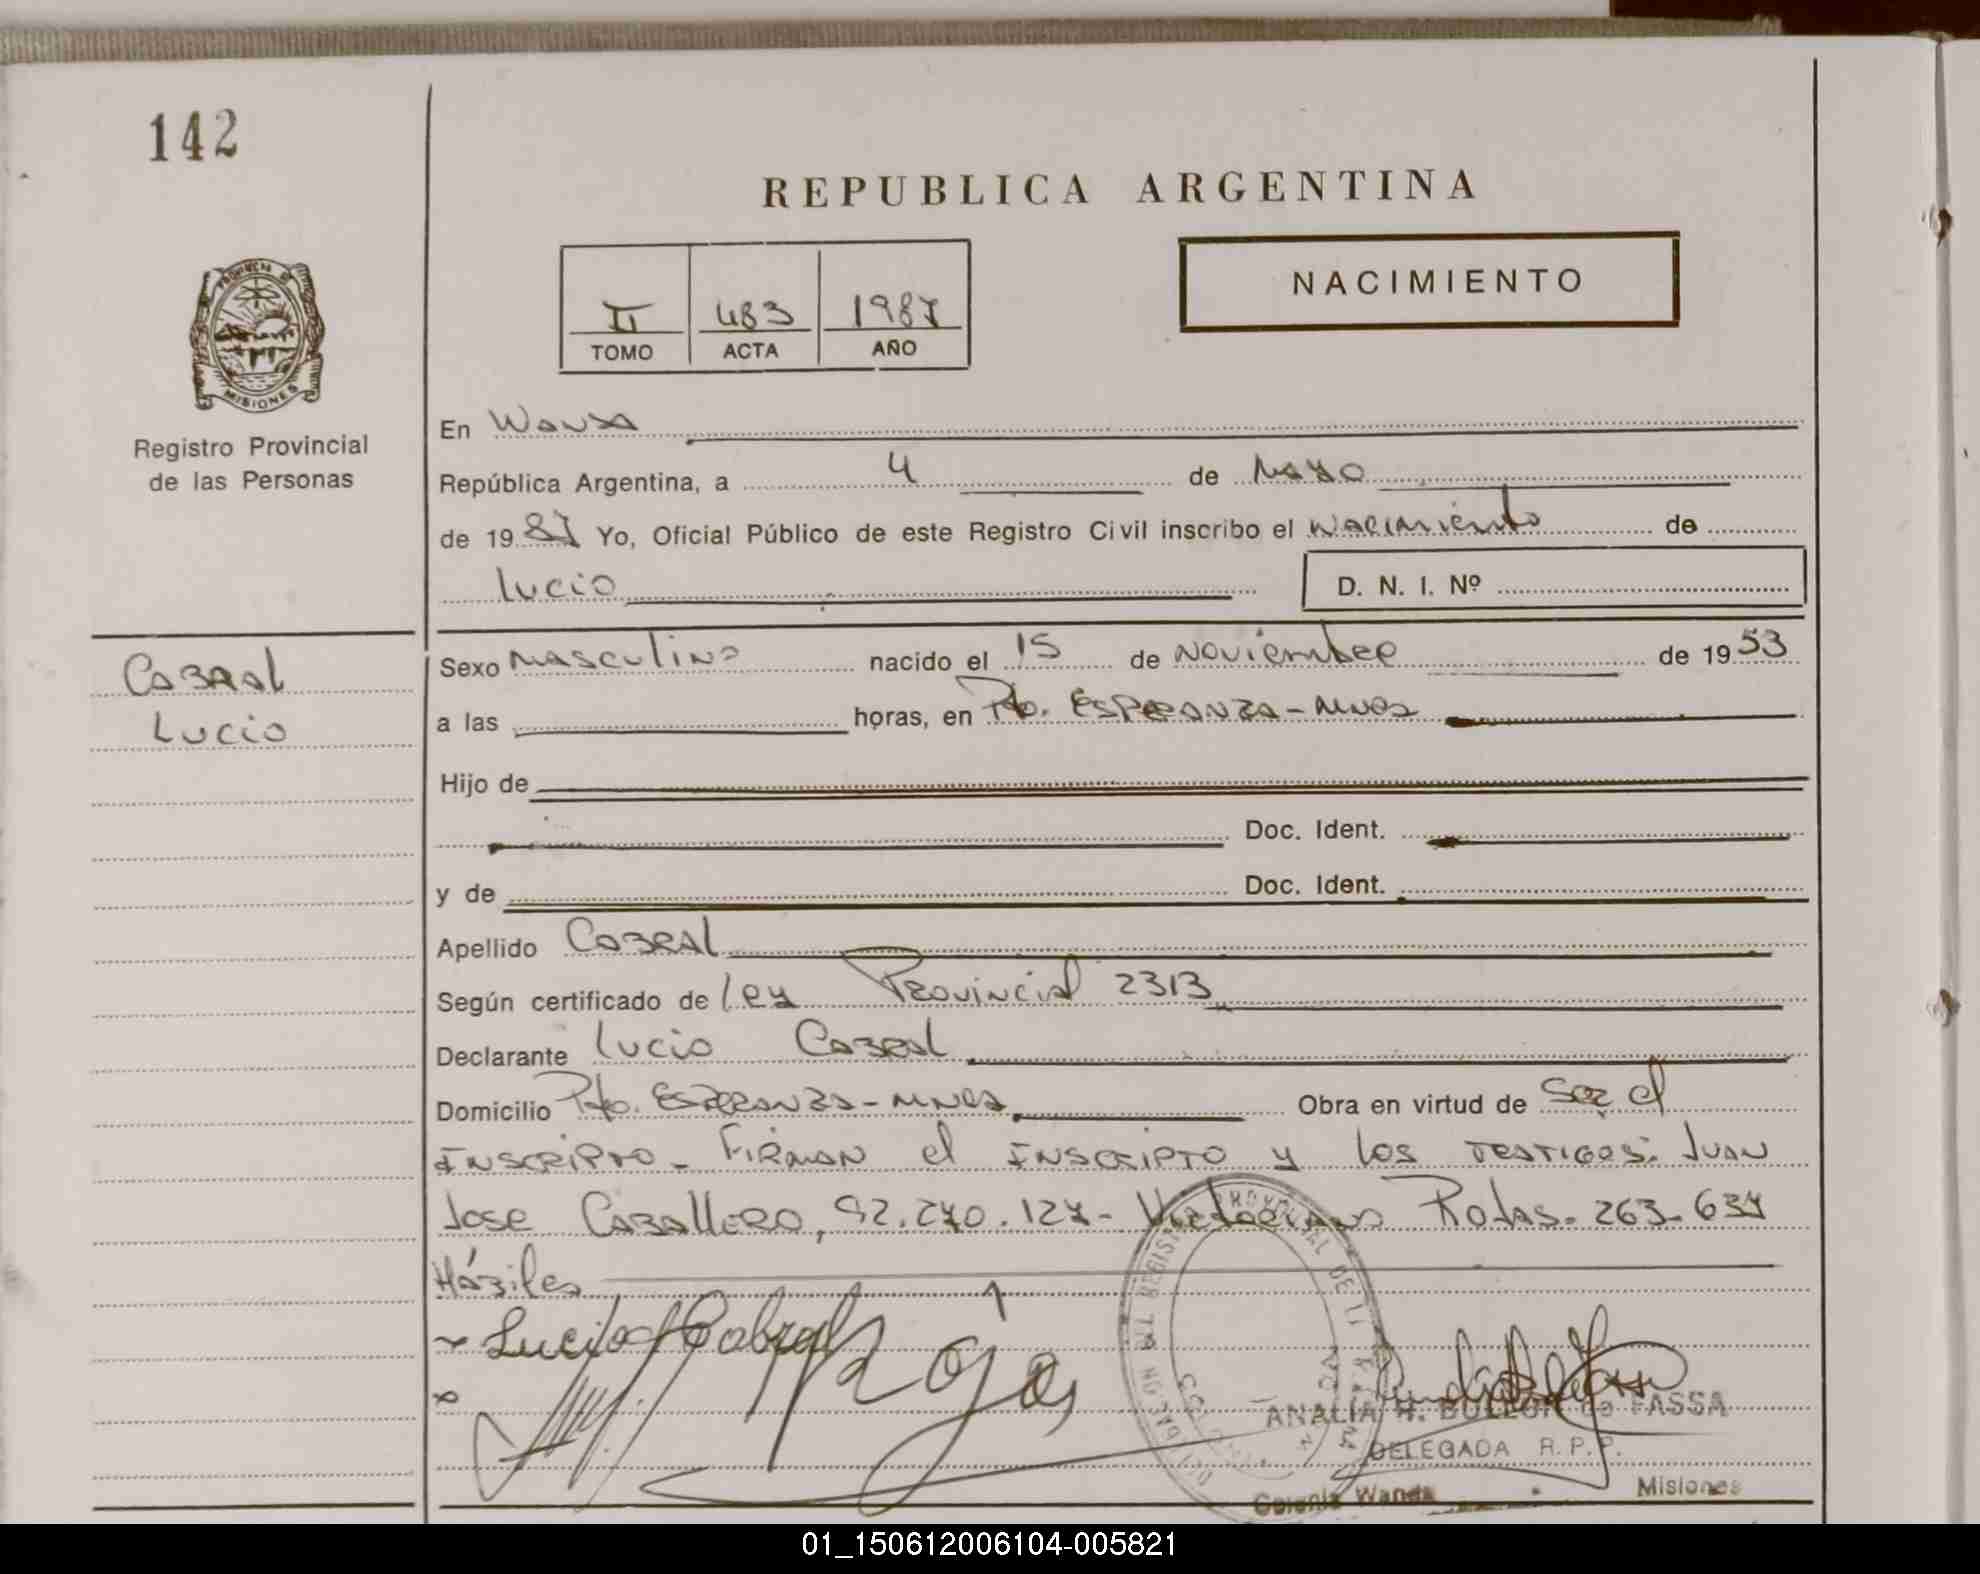 142
REPUBLICA ARGENTINA
NACIMIENTO
II 483 1987
TOMO ACTA AÑO
PROVINCIA DE
MISIONES
Registro Provincial
de las Personas
En Wanda
República Argentina, a 4 de Mayo
de 1987 Yo, Oficial Público de este Registro Civil inscribo el Nacimiento de
Lucio D. N. I. Nº
Cabral
Lucio
Sexo Masculino nacido el 15 de Noviembre de 1953
a las horas, en Pto. Esperanza - Mnes
Hijo de
Doc. Ident.
y de Doc. Ident.
Apellido Cabral
Según certificado de Ley Provincial 2313
Declarante Lucio Cabral
Domicilio Pto. Esperanza - Mnes Obra en virtud de Ser el
Inscripto - Firman el Inscripto y los testigos: Juan
Jose Caballero, 92.270.127 - Victoriano Rojas - 263.637
Hábiles
Lucio Cabral Rojas
ANALIA H. BULLON de FASSA
DELEGADA R. P. P.
Colonia Wanda Misiones
01_150612006104-005821